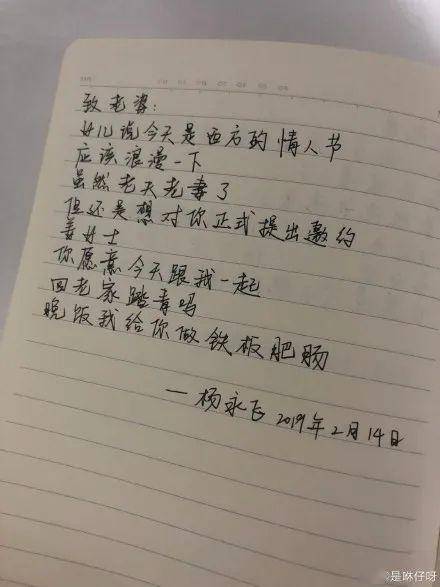 致老婆：
女儿说今天是西方的情人节
应该浪漫一下
虽然老夫老妻了
但还是想对你正式提出邀约
姜女士
你愿意今天跟我一起
回老家踏青吗
晚饭我给你做铁板肥肠
—杨永飞 2019年2月14日
是咻仔呀